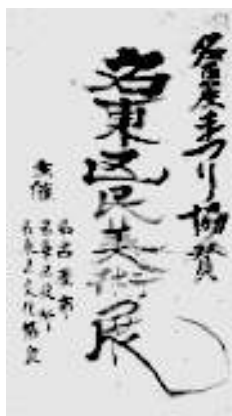 名古屋まつり協賛
名東区民美術展
主催
名古屋市
名東区役所
名東区文化協会